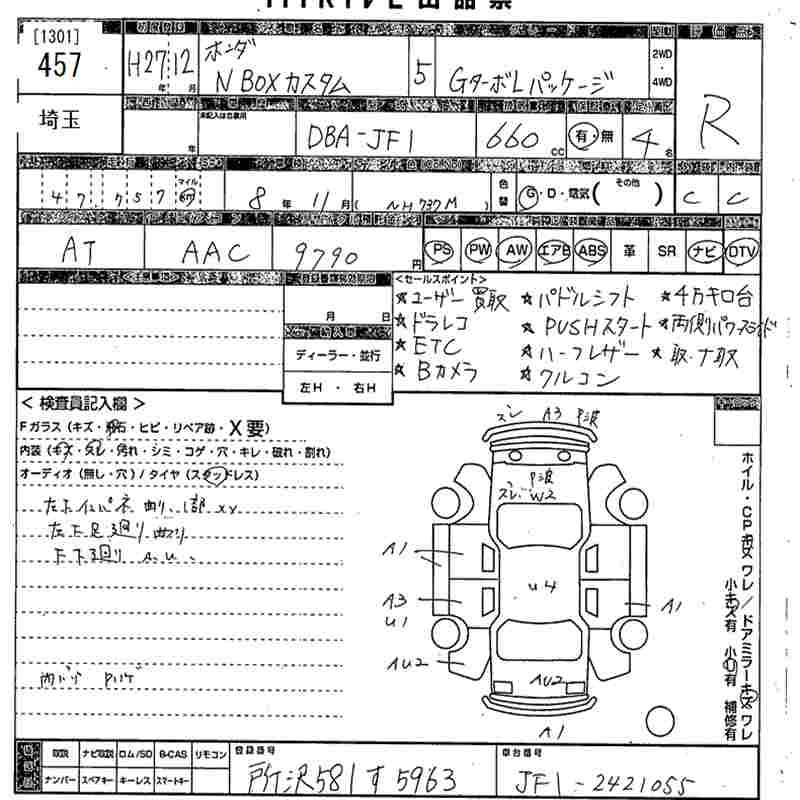 [1301]
457
H27 年 12 月
ホンダ
N BOXカスタム
5
Gターボ Lパッケージ
2WD
・
4WD
R
埼玉
年
未記入は自家用
DBA-JF1
660 cc
有・無
4 名
47757
マイル
km
8 年 11 月
( NH737M )
色替
G・D・電気( その他 )
C
C
AT
AAC
9790 円
PS PW AW エアB ABS 革 SR ナビ DTV
月 日
ディーラー・並行
左H ・ 右H
<セールスポイント>
★ユーザー買取 ★パドルシフト ★4万キロ台
★ドラレコ ★PUSHスタート ★両側パワースライド
★ETC ★ハーフレザー ★取・ナ取
★Bカメラ ★クルコン
< 検査員記入欄 >
Fガラス (キズ・飛石・ヒビ・リペア跡・X要)
内装 (キズ・スレ・汚れ・シミ・コゲ・穴・キレ・破れ・割れ)
オーディオ (無し・穴) / タイヤ (スタッドレス)
左下インパネ曲り、1部XX
左下足廻り曲り
下下廻り A.U.
スレ A3 P波
P波
スレ W2
A1
U4
A3
U1
A1
AU2
AU2
A1
ホイル・CPキズ ワレ / ドアミラーキズ ワレ
小キズ有 小凹有 補修有
取説 ナビ取説 ロム/SD B-CAS リモコン
ナンバー スペアキー キーレス スマートキー
登録番号
所沢581す5963
車台番号
JF1-2421055